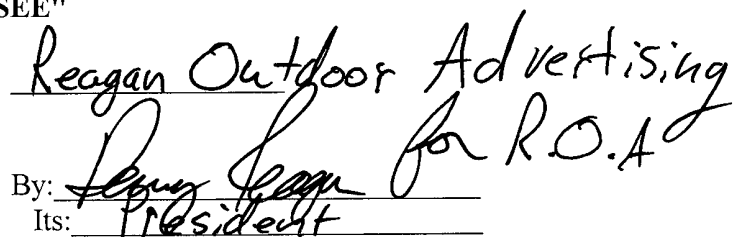 SEE"
Reagan Outdoor Advertising
By: Reagan for R.O.A
Its: President